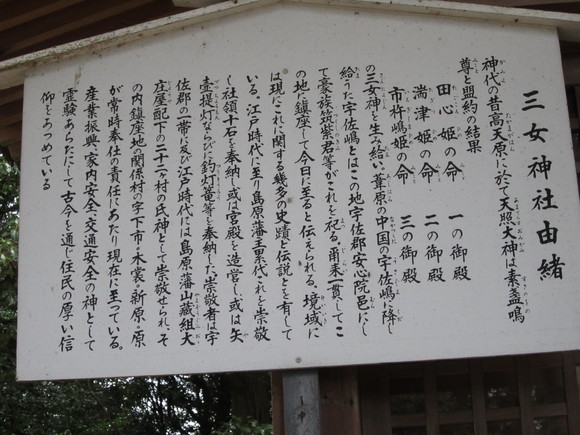 三女神社由緒
神代の昔高天原に於て天照大神は素盞鳴
尊と盟約の結果
田心姫の命 一の御殿
湍津姫の命 二の御殿
市杵嶋姫の命 三の御殿
の三女神を生み給い葦原の中国の宇佐嶋に降し
給うた宇佐嶋とはこの地宇佐郡安心院邑にし
て豪族筑紫君等がこれを祀る。甫来一貫してこ
の地に鎮座して今日に至ると伝えられる。境域に
は現にこれに関する幾多の史蹟と伝説とを有して
いる。江戸時代に至り島原藩主累代これを崇敬
し社領十石を奉納し或は宮殿を造営し或は矢
壷提灯ならびに釣灯篭等を奉納した。崇敬者は宇
佐郡の一帯に及び江戸時代には島原藩山蔵組大
庄屋配下の二十二ヶ村の氏神として崇敬せられそ
の内鎮座地関係村の字下市・木裳・新原・原
が常時奉仕の責任にあたり現在に至っている。
産業振興・家内安全・交通安全の神として
霊験あらたにして古今を通じ住民の厚い信
仰をあつめている